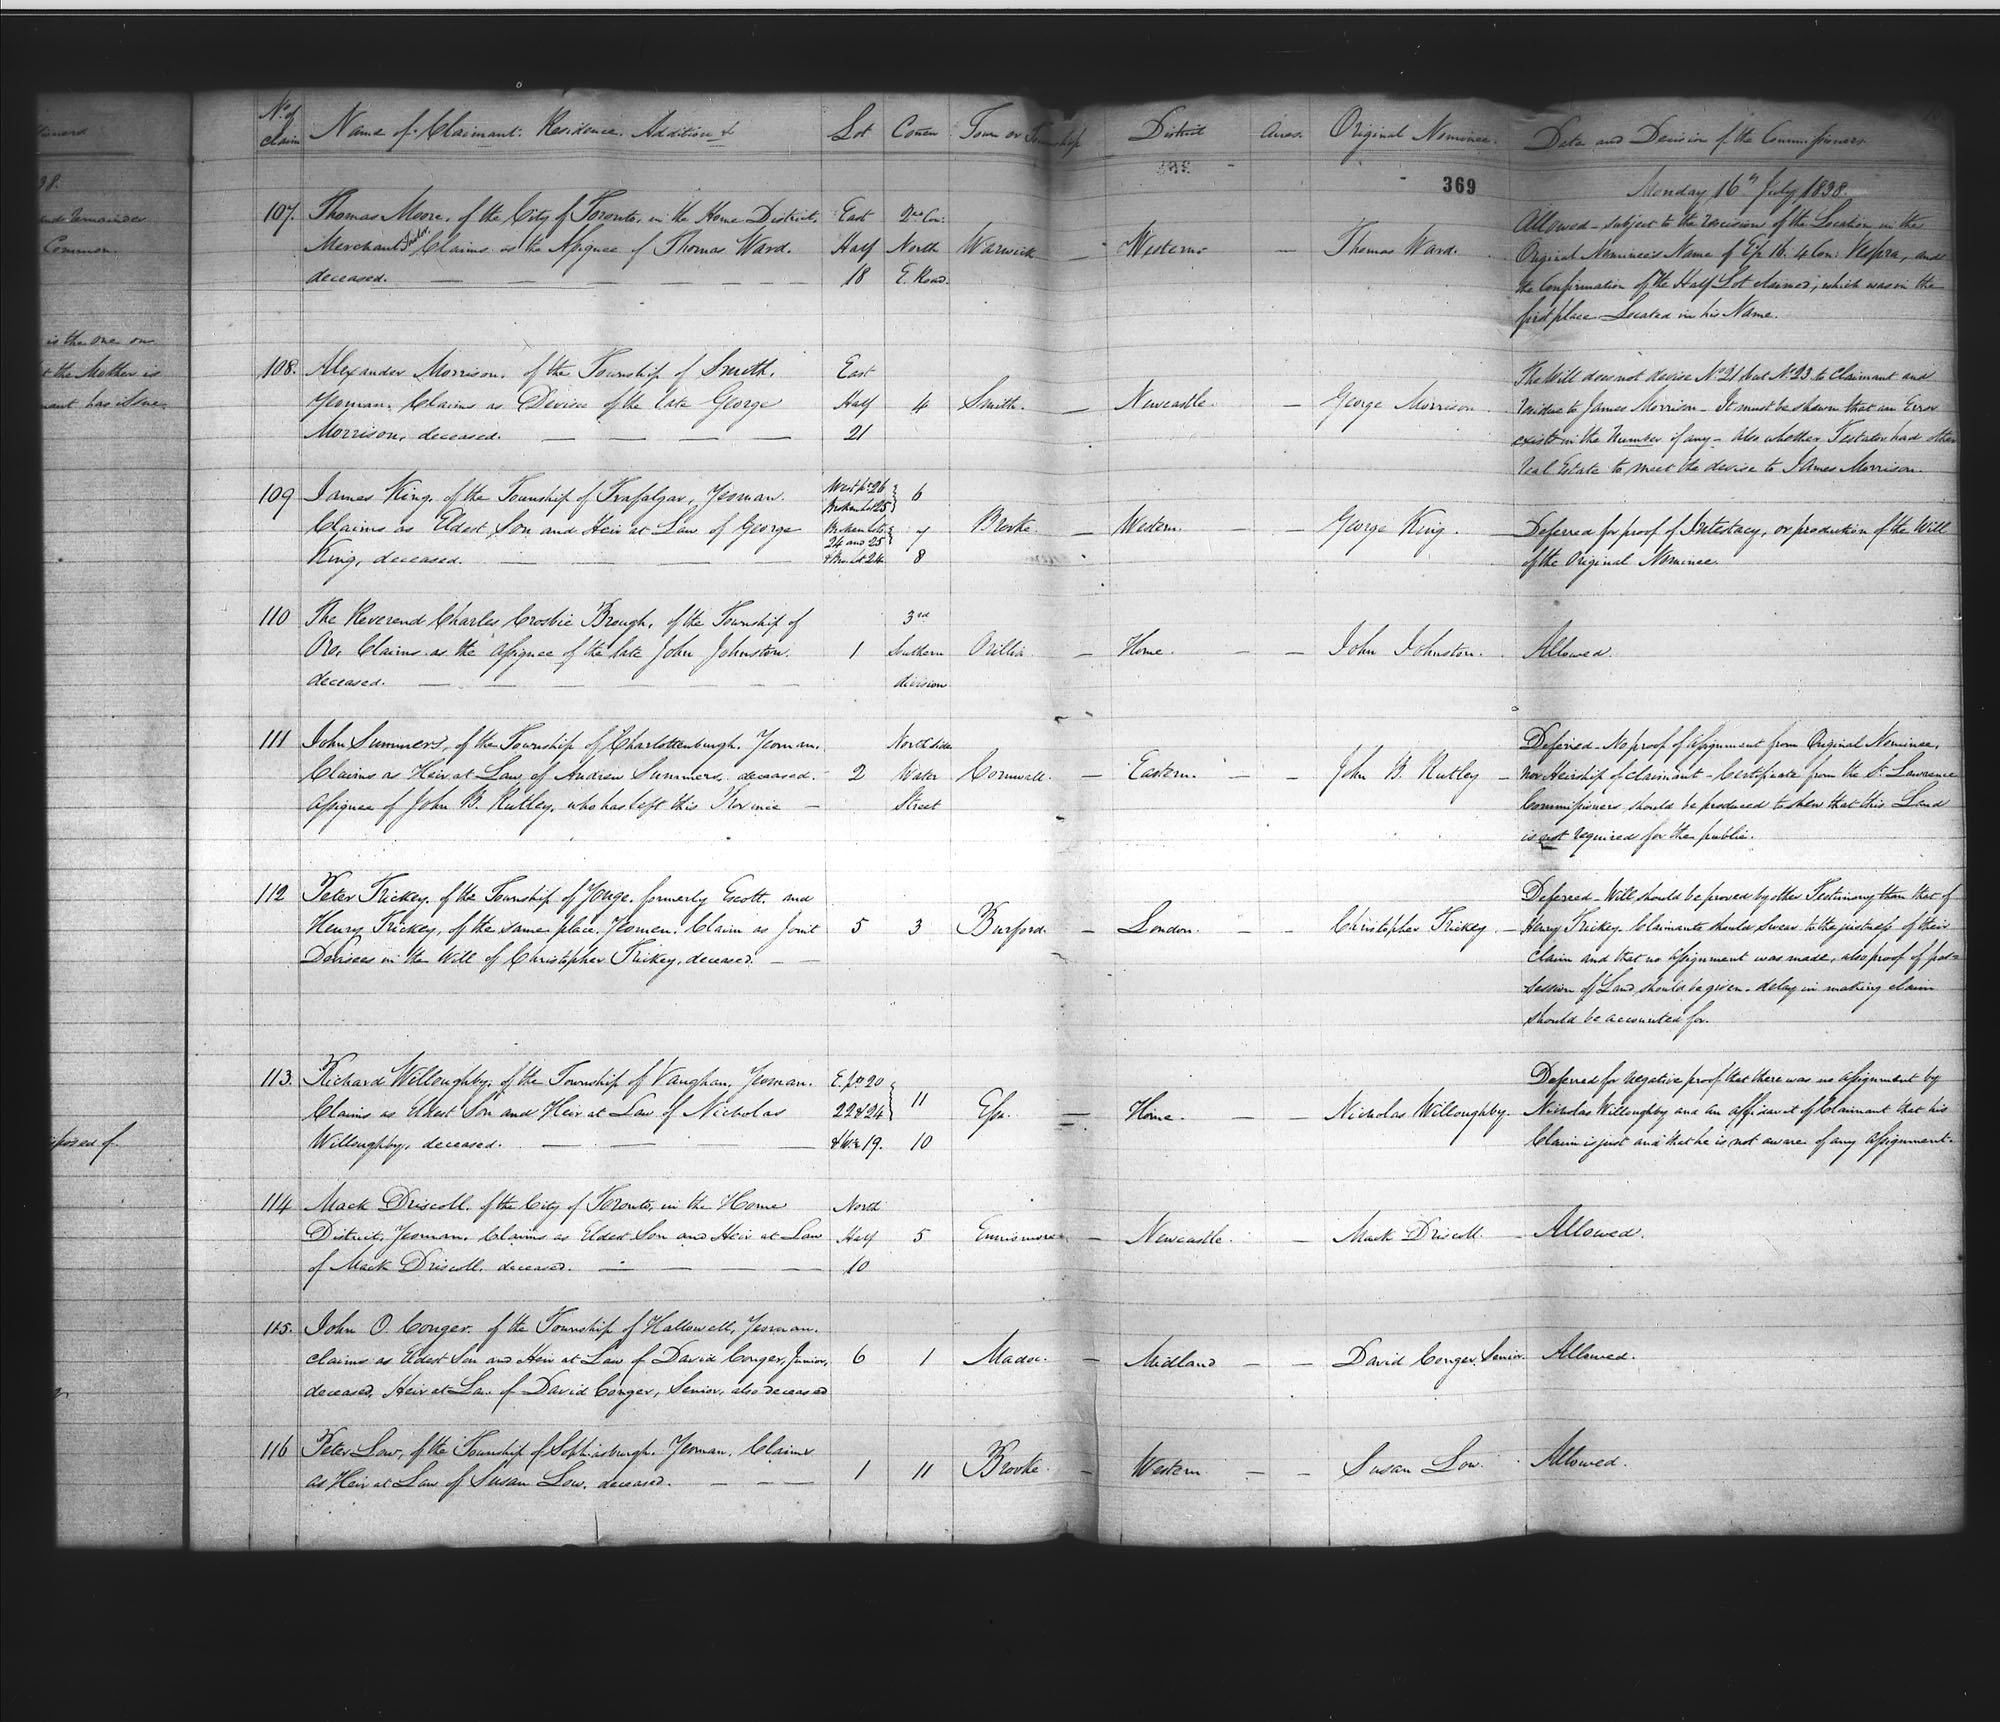 No. of Claim
Name of Claimant. Residence. Addition &
Lot
Concn
Town or Township
District
Acres.
Original Nominee.
Date and Decision of the Commissioners
369
Monday 16th July 1838.
107. Thomas Moore, of the City of Toronto, in the Home District, East 2nd Con:
Merchant Claims as the Assignee of Thomas Ward. Half North Warwick — Western — Thomas Ward.
deceased. — — — — — — — 18 E. Road.
Allowed – subject to the rescision of the Location in the
Original Nominee's Name of E½ 16. 4 Con: Vespra, and
the Confirmation of the Half Lot claimed; which was in the
first place Located in his Name.
108. Alexander Morrison. of the Township of Smith, East
Yeoman. Claims as Devisee of the late George Half 4 Smith. — Newcastle. — George Morrison.
Morrison, deceased. — — — — 21
The Will does not devise No. 21 but No. 23 to Claimant and
residue to James Morrison – It must be shewn that an Error
exists in the Number if any – Also whether Testator had other
real Estate to meet the devise to James Morrison.
109 James King, of the Township of Trafalgar, Yeoman. West pt 26 } 6
Broken Lot 25
Claims as Eldest Son and Heir at Law of George Broken Lots } 7 Brooke. — Western. — — George King. —
24 and 25
King, deceased. — — — & Bn Lot 24 8
Deferred for proof of Intestacy, or production of the Will
of the Original Nominee.
110 The Reverend Charles Crosbie Brough, of the Township of 3rd
Oro, Claims as the Assignee of the late John Johnston. 1 Southern Orillia — Home. — — John Johnston. Allowed.
deceased. — — — — — division
111 John Summers, of the Township of Charlottenburgh. Yeoman. North side
Claims as Heir at Law of Andrew Summers, deceased. 2 Water Cornwall. — Eastern. — — John B. Rutley —
Assignee of John B. Rutley, who has left this Province — Street
Deferred – No proof of Assignment from Original Nominee,
nor Heirship of claimant – Certificate from the St. Lawrence
Commissioners should be produced to shew that this Land
is not required for the public.
112 Peter Trickey, of the Township of Yonge, formerly Escott, and
Henry Trickey, of the same place, Yeomen. Claim as Joint 5 3 Burford. — London. — — Christopher Trickey —
Devisees in the Will of Christopher Trickey, deceased. — —
Deferred – Will should be proved by other Testimony than that of
Henry Trickey. Claimants should swear to the justness of their
Claim and that no Assignment was made, also proof of pos=
session of Land should be given. delay in making claim
should be accounted for.
113. Richard Willoughby, of the Township of Vaughan, Yeoman. E. pts 20
Claims as Eldest Son and Heir at Law of Nicholas 22 & 24 } 11 Essa. — Home. — Nicholas Willoughby.
Willoughby, deceased. — — — & W½ 19. 10
Deferred for negative proof that there was no Assignment by
Nicholas Willoughby and an affidavit of Claimant that his
Claim is just and that he is not aware of any Assignment.
114 Mack Driscoll. of the City of Toronto, in the Home North
District, Yeoman. Claims as Eldest Son and Heir at Law Half 5 Ennismore — Newcastle. — Mack Driscoll — Allowed.
of Mack Driscoll. deceased. — — — — 10
115. John O. Conger. of the Township of Hallowell, Yeoman.
claims as Eldest Son and Heir at Law of David Conger, Junior, 6 1 Madoc. — Midland — — David Conger Senior. Allowed.
deceased, Heir at Law of David Conger, Senior, also deceased
116 Peter Low, of the Township of Sophiasburgh. Yeoman. Claims
as Heir at Law of Susan Low, deceased. — — — 1 11 Brooke. — Western — — Susan Low. Allowed.
38.
and remainder
Common.
is the one on
the Mother is
has issue